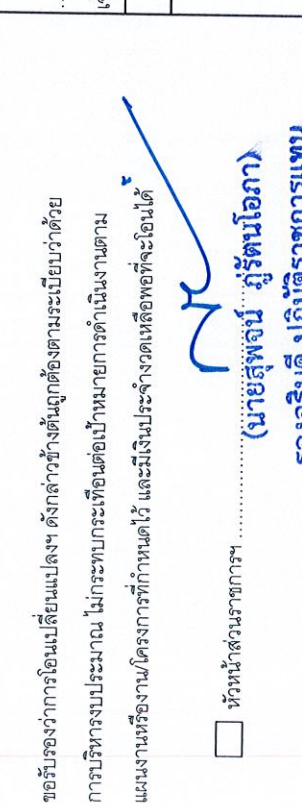 ขอรับรองว่าการโอนเปลี่ยนแปลงฯ ดังกล่าวข้างต้นถูกต้องตามระเบียบว่าด้วย
การบริหารงบประมาณ ไม่กระทบกระเทือนต่อเป้าหมายการดำเนินงานตาม
แผนงานหรืองาน/โครงการที่กำหนดไว้ และมีเงินประจำงวดเหลือพอที่จะโอนได้
หัวหน้าส่วนราชการฯ ..........................
(นายสุพจน์ ภู่รัตนโอภา)
รองอธิบดี ปฏิบัติราชการแทน